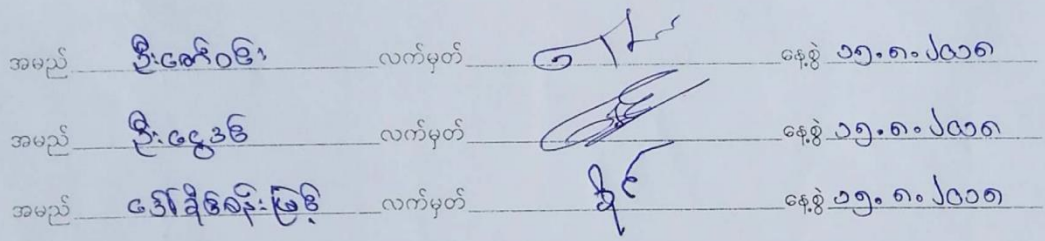 အမည် ဦးဇော်ဝင်း လက်မှတ် နေ့စွဲ ၁၅.၈.၂၀၁၈
အမည် ဦးငွေဒင် လက်မှတ် နေ့စွဲ ၁၅.၈.၂၀၁၈
အမည် ဒေါ်ခိုင်စန်းမြင့် လက်မှတ် နေ့စွဲ ၁၅.၈.၂၀၁၈